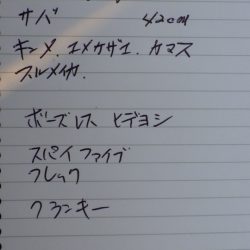 サバ 42cm
キンメ. ユメカサゴ. カマス
スルメイカ.
ボーズレス ヒデヨシ
スパイファイブ
フレック
クランキー